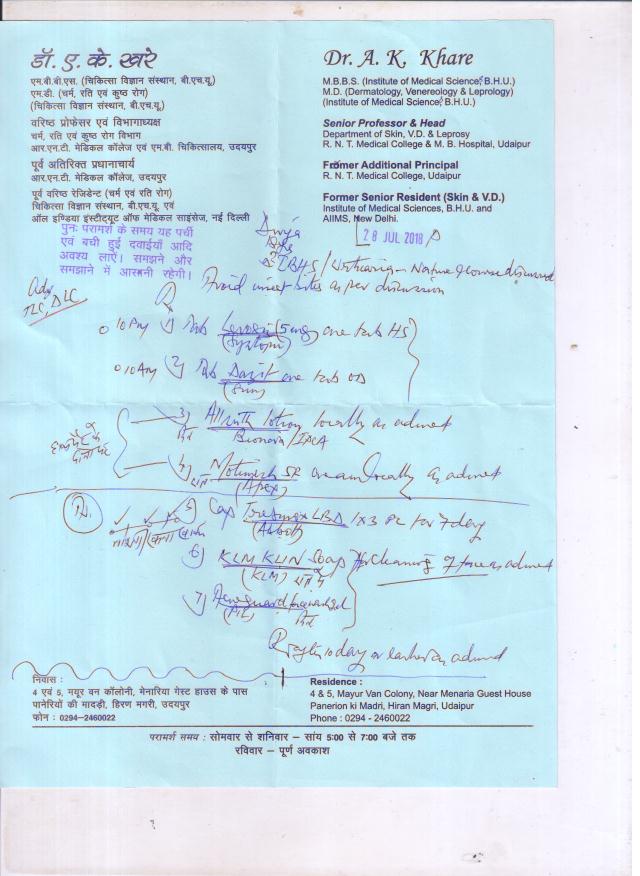 डॉ. ए. के. खरे
एम.बी.बी.एस. (चिकित्सा विज्ञान संस्थान, बी.एच.यू.)
एम.डी. (चर्म, रति एवं कुष्ठ रोग)
(चिकित्सा विज्ञान संस्थान, बी.एच.यू.)
वरिष्ठ प्रोफेसर एवं विभागाध्यक्ष
चर्म, रति एवं कुष्ठ रोग विभाग
आर.एन.टी. मेडिकल कॉलेज एवं एम.बी. चिकित्सालय, उदयपुर
पूर्व अतिरिक्त प्रधानाचार्य
आर.एन.टी. मेडिकल कॉलेज, उदयपुर
पूर्व वरिष्ठ रेजिडेन्ट (चर्म एवं रति रोग)
चिकित्सा विज्ञान संस्थान, बी.एच.यू. एवं
ऑल इण्डिया इंस्टीट्यूट ऑफ मेडिकल साइंसेज, नई दिल्ली
Dr. A. K. Khare
M.B.B.S. (Institute of Medical Science, B.H.U.)
M.D. (Dermatology, Venereology & Leprology)
(Institute of Medical Science, B.H.U.)
Senior Professor & Head
Department of Skin, V.D. & Leprosy
R. N. T. Medical College & M. B. Hospital, Udaipur
Former Additional Principal
R. N. T. Medical College, Udaipur
Former Senior Resident (Skin & V.D.)
Institute of Medical Sciences, B.H.U. and
AIIMS, New Delhi.
पुनः परामर्श के समय यह पर्ची
एवं बची हुई दवाईयाँ आदि
अवश्य लाएं। समझने और
समझाने में आसानी रहेगी।
28 JUL 2018
IBHS / Urticaria - Nature & course discussed
Avoid insect bites as per discussion
Adv
TLC, DLC
10 PM 1) Tab (5mg) one tab HS
10 AM 2) Tab one tab OD
(Sun)
3) lotion locally as advised
4) cream locally as advised
(Apex)
5) Cap LBD 1x3 PC for 7 day
(Abbott)
6) KLM KLIN Soap for cleaning of face as advised
(KLM)
7) Acneguard
R after 10 day or earlier as advised
निवास :
4 एवं 5, मयूर वन कॉलोनी, मेनारिया गेस्ट हाउस के पास
पानेरियों की मादड़ी, हिरण मगरी, उदयपुर
फोन : 0294-2460022
Residence :
4 & 5, Mayur Van Colony, Near Menaria Guest House
Panerion ki Madri, Hiran Magri, Udaipur
Phone : 0294 - 2460022
परामर्श समय : सोमवार से शनिवार - सांय 5:00 से 7:00 बजे तक
रविवार - पूर्ण अवकाश